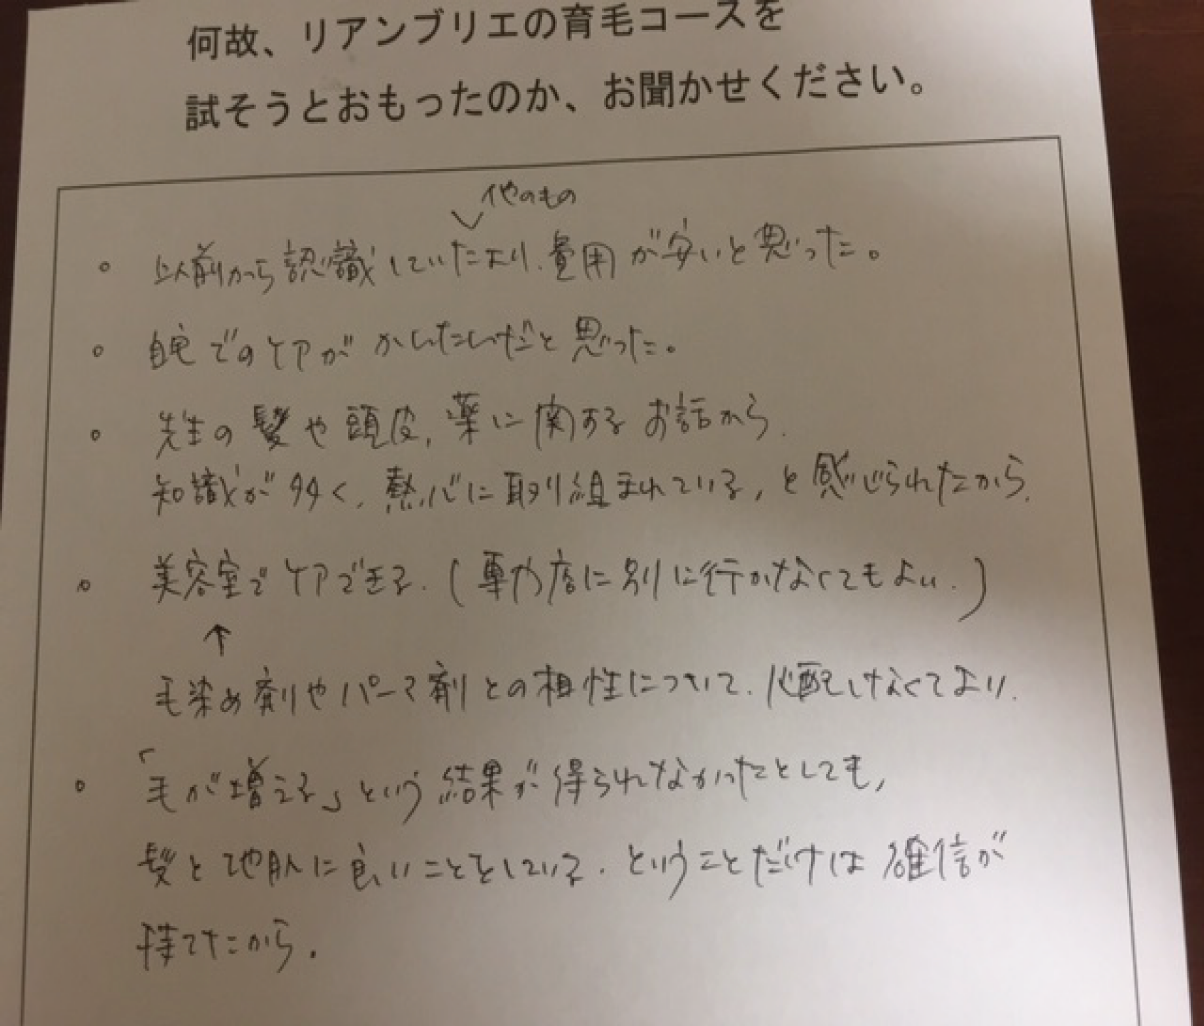 何故、リアンブリエの育毛コースを
試そうとおもったのか、お聞かせください。
他のもの
。以前から認識していたより、費用が安いと思った。
。自宅でのケアがかんたんだと思った。
。先生の髪や頭皮、薬に関するお話から、
知識が多く、熱心に取り組まれている、と感じられたから、
。美容室でケアできる。(専門店に別に行かなくてもよい。)
↑
毛染め剤やパーマ剤との相性について、心配しなくてよい。
。「毛が増える」という結果が得られなかったとしても、
髪と地肌に良いことをしている、ということだけは確信が
持てたから。